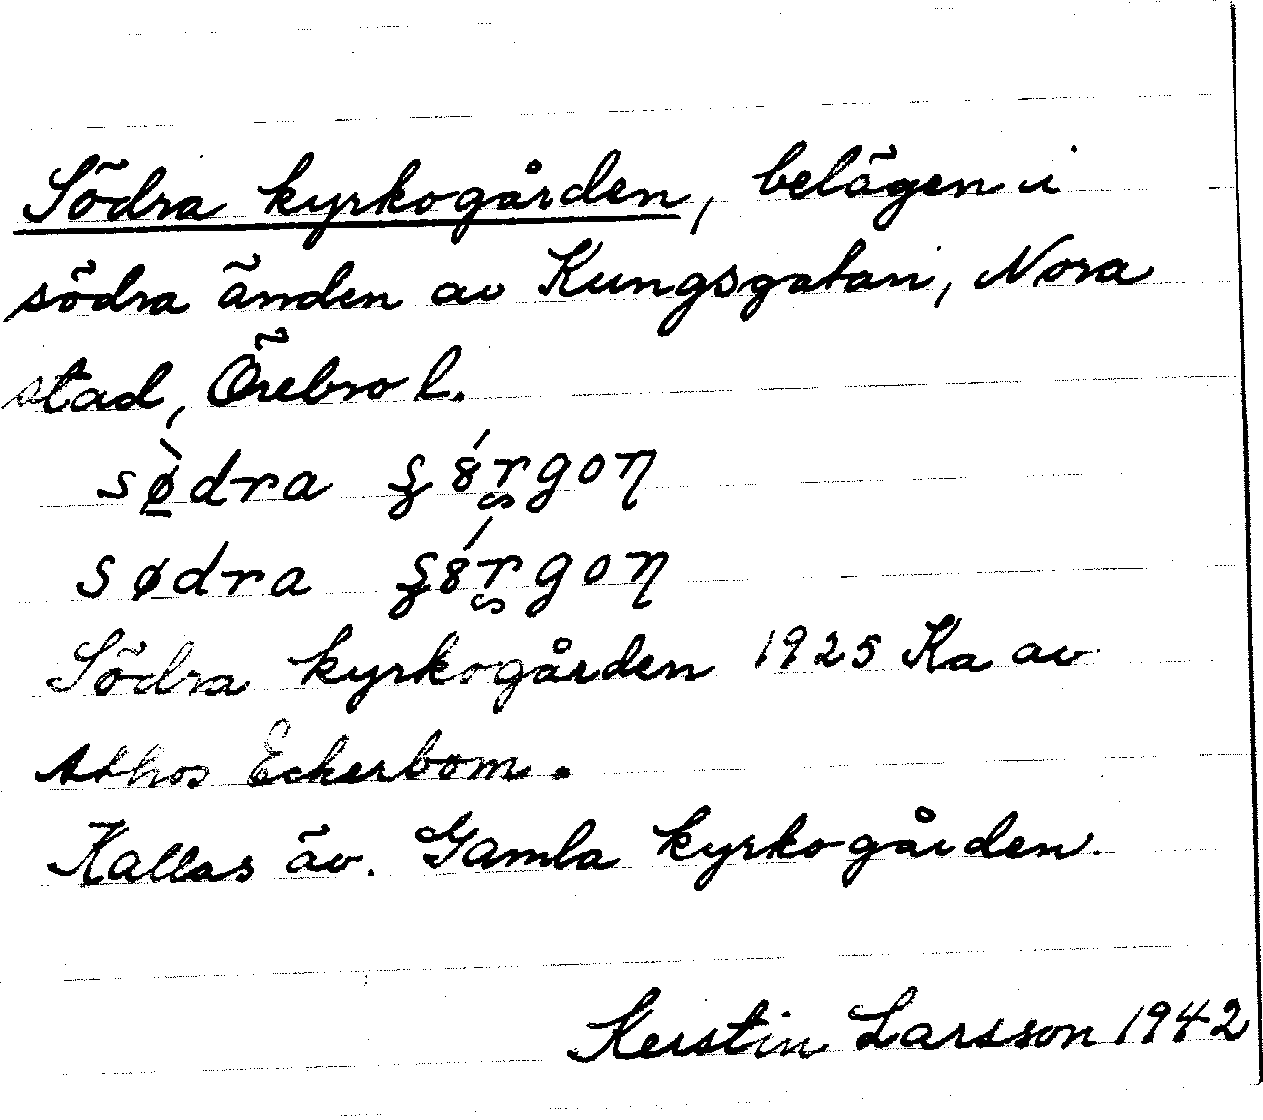 Södra kyrkogården, belägen i
södra änden av Kungsgatan, Nora
stad, Örebro l.
södra
södra
Södra kyrkogården 1925 Ka av
Athos Eckerbom.
Kallas äv. Gamla kyrkogården.
Kerstin Larsson 1942